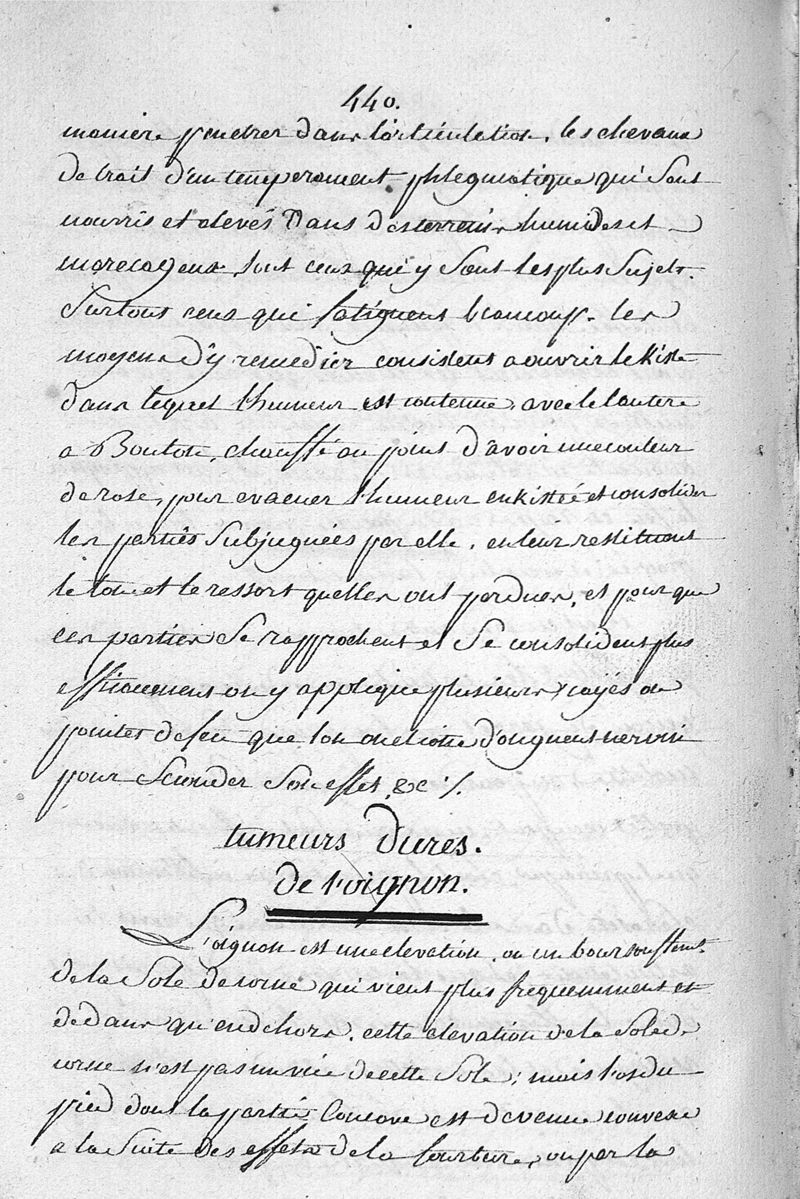 440.
maniere penetrer dans l'articulation. les chevaux
de trait d'un temperament phlegmatique qui sont
nourris et elevés dans des terreins humides et
marecageux sont ceux qui y sont les plus sujets.
surtout ceux qui fatiguent beaucoup. les
moyens d'y remedier consistent a ouvrir le kiste
dans lequel l'humeur est contenue, avec le cautere
a Bouton, chauffé au point d'avoir une couleur
de rose, pour evacuer l'humeur enkistée et consolider
les parties subjuguées par elle, en leur restituant
le ton et le ressort quelles ont perdues, et pour que
ces parties se rapprochent et se consolident plus
efficacement on y applique plusieurs rayes ou
pointes de feu que l'on onctionne d'onguent nervin
pour seconder son effet, &c ./.
tumeurs dures.
de l'oignon.
L'oignon est une elevation, ou un boursouflemt.
de la sole de corne qui vient plus frequemment en
dedans qu'en dehors. cette elevation de la sole de
corne n'est pas un vice de cette sole; mais l'os du
pied dont la partie concave est devenue convexe
a la suite des effets de la fourbure, ou par la